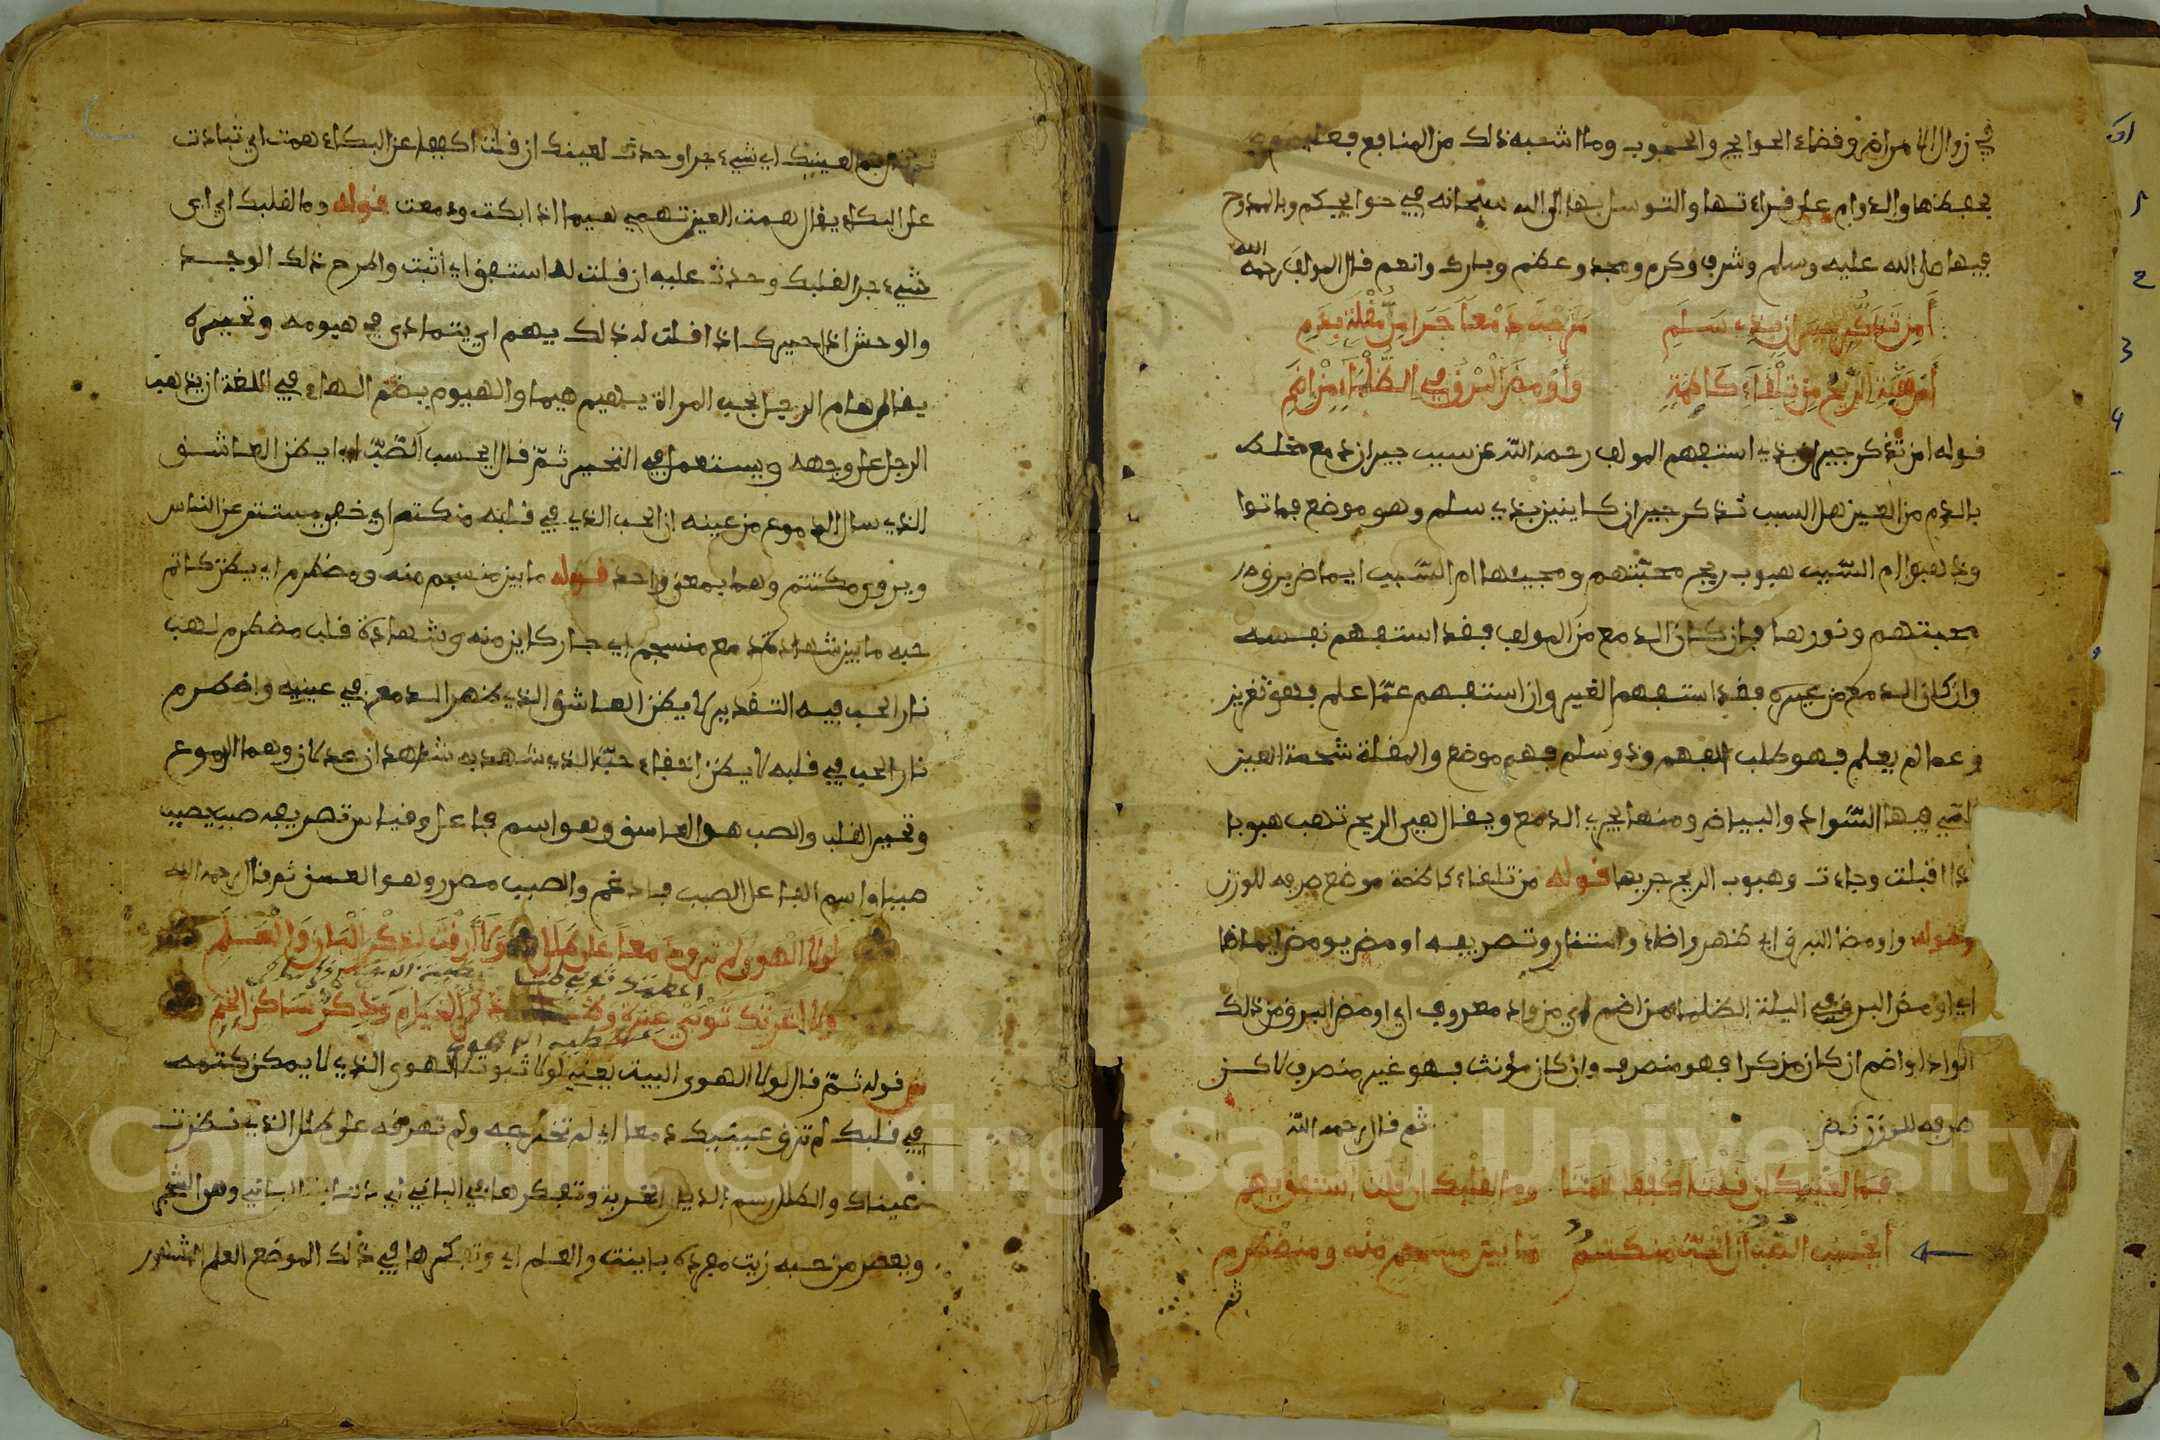 في زوال الامراض وقضاء الحوايج والحبوب وما اشبه ذلك من المنافع فعليكم
بحفظها والدوام على قراءتها والتوسل بها الى الله سبحانه في حوايجكم وبالممدوح
فيها صلى الله عليه وسلم وشرف وكرم ومجد وعظم وبارك وانعم قال المولف رحمه الله
أَمِن تَذَكُّرِ جِيرَانٍ بِذِي سَلَمِ مَزَجْتَ دَمْعًا جَرَا مِن مُّقْلَةٍ بِدَمِ
أَمْ هَبَّتِ الرِّيحُ مِن تِلْقَاءِ كَاظِمَةٍ وَأَوْمَضَ الْبَرْقُ فِي الظَّلْمَاءِ مِنْ إِضَمِ
قوله امن تذكر جيران بذي استفهم المولف رحمه الله عن سبب جيران دمع مختلط
بالدم من العين هل السبب تذكر جيران كاينين بذي سلم وهو موضع فماتوا
وذهبوا ام السبب هبوب ريح محبتهم ومجيئها ام السبب ايماض بروق
محبتهم ونورها فان كان الدمع من المولف فقد استفهم نفسه
وان كان الدمع من غيره فقد استفهم الغير وان استفهم عمّا علم فهو تغرير
وعما لم يعلم فهو طلب الفهم وذو سلم فهم موضع والمقلة شحمة العين
التي فيها السواد والبياض ومنها يجري الدمع ويقال هبى الريح تهب هبوبا
اذا اقبلت وجاءت وهبوب الريح جريها قوله من تلقاء كاظمة موضع صرفه للوزن
وقوله واومض البرق اي ظهر واضاء واستنار وتصريفه اومض يومض ايماضا
اي اومض البرق في اليلة الظلماء من اضم اي من واد معروف اي اومض البرق من ذلك
الواد واضم ان كان مذكرا فهو منصرف وان كان مؤنث فهو غير منصرف لاكن
صرفه للوزن نص ثم قال رحمه الله
فما لعينيك ان قلت اكففا همتا وما لقلبك ان قلت استفق يهم
ايحسب الصب ان الحب منكتم ما بين منسجم منه ومضطرم
ثم
فما لعينيك اي شيء جرا وحدث لعينيك ان قلت اكففا عن البكاء همت اي تبادت
على البكاء يقال همت العين تهمي هيما اذا بكت ودمعت قوله وما لقلبك اي اي
شيء جرا لقلبك وحدث عليه ان قلت له استفق اي اثبت واطرح ذلك الوجد
والوحش اذا حيرك اذا قلت له ذلك يهم اي يتمادي في هيومه وتحييره
يقال هام الرجل بحب المراة يهيم هيما والهيوم بضم الهاء في اللغة ان يذهب
الرجل على وجهه ويستعمل في التحير ثمّ قال ايحسب الصّبّ اي ايظن العاشق
الذي سال الدموع من عينه ان الحب الذي في قلبه منكتم اي خفي مستتر عن الناس
ويروى مكتتم وهما بمعنى واحد قوله ما بين منسجم منه ومضطرم اي يظن كاتم
حبه ما بين شهادة دمع منسجم اي جار كاين منه وشهادة قلب مضطرم لهب
نار الحب فيه التقدير لا يظن العاشق الذي ظهر الدمع في عينيه واضطرم
نار الحب في قلبه لا يظن اخفاء حبّه الذي شهد به شاهدان عدلان وهما الدموع
وتحيير القلب والصب هو العاشق وهو اسم فاعل وقياس تصريفه صبب يصبب
صببا واسم الفاعل الصبب فادغم والصبب مصدر وهو العشق ثم قال رحمه الله
لولا الهوى لم ترق دمعا على طلل ولا أرقت لذكر البان والعلم
ولا اعرتك ثوبي عبرة وضنى ذكرى الخيام وذكرى ساكن الخيم
قوله ثمّ قال لولا الهوى البيت يعني لولا ثبوت الهوى الذي لا يمكن كتمه
في قلبك لم ترق عينيك دمعا اي لم تخرجه ولم تهرقه على طلل الذي نظرت
عيناك والطلل رسم الديار الخربة وتفكرها في الباني اي ذات البان وهي الشجر
وبعض من حبه زيت موخذه باينت والعلم اي وتفكرها في ذلك الموضع العلم المشهور